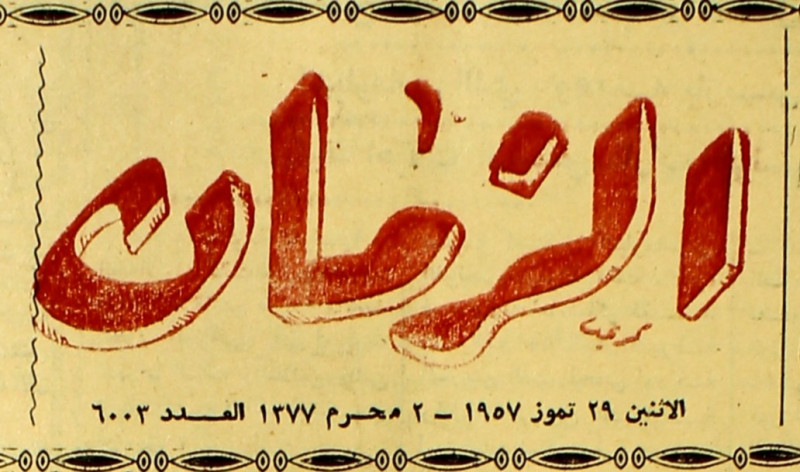 الزمان
الاثنين ٢٩ تموز ١٩٥٧ – ٢ محرم ١٣٧٧ العدد ٦٠٠٣